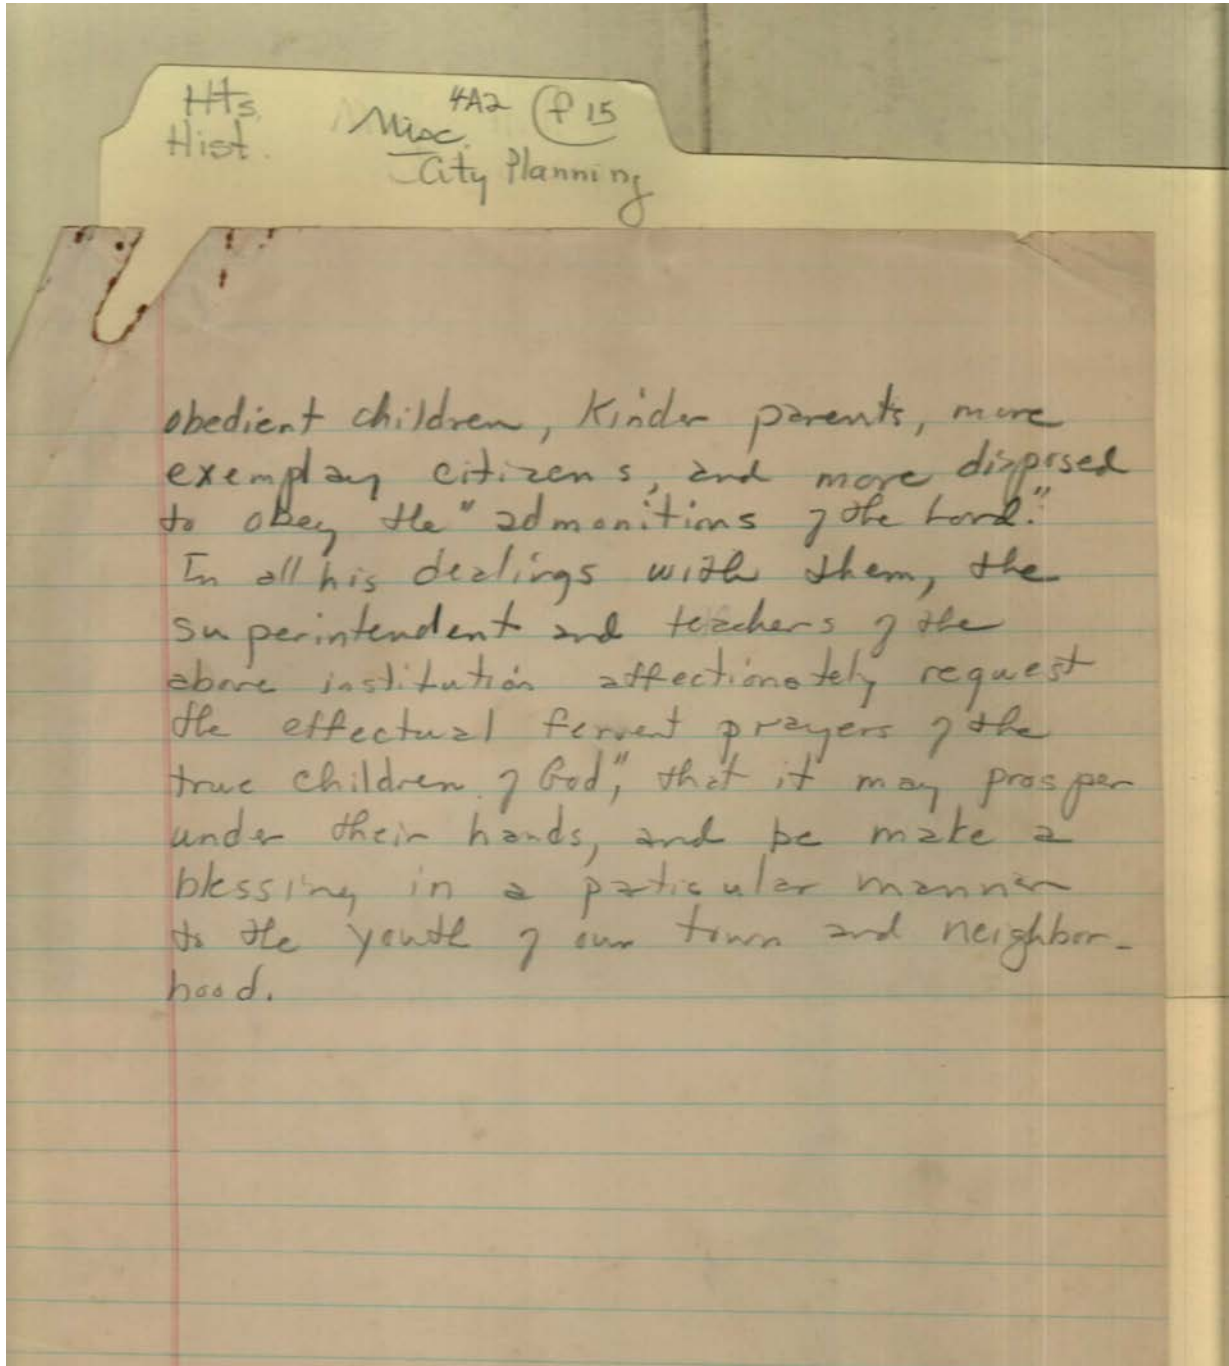 Hts.
Hist.
4A2 f 15
Misc.
City Planning
obedient children, kinder parents, more
exemplay citizens, and more disposed
to obey the "admonitions of the Lord."
In all his dealings with them, the
superintendent and teachers of the
above institution affectionately request
the effectual fervent prayers of the
true children of God", that it may prosper
under their hands, and be make a
blessing in a paticular manner
to the youth of our town and neighbor-
hood.